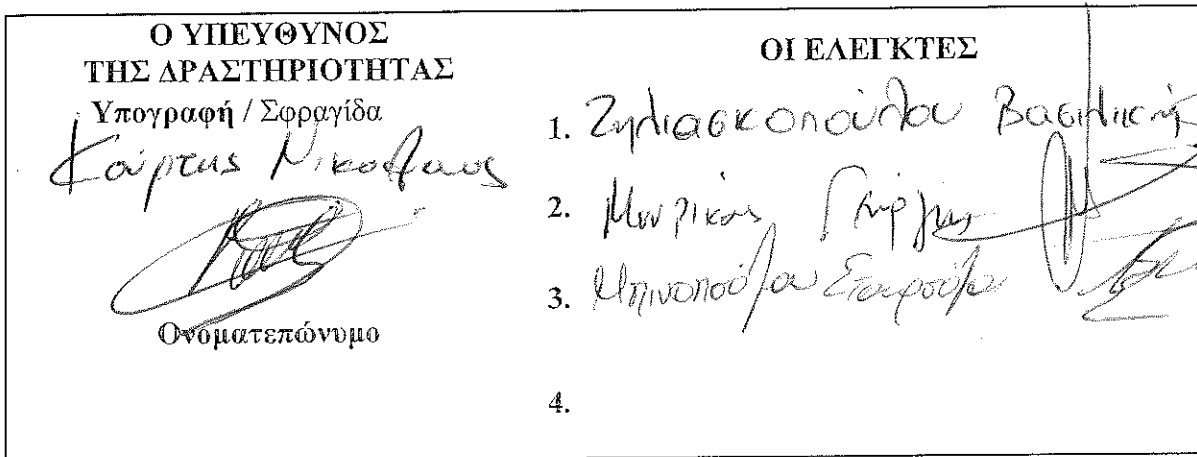 Ο ΥΠΕΥΘΥΝΟΣ
ΤΗΣ ΔΡΑΣΤΗΡΙΟΤΗΤΑΣ
Υπογραφή / Σφραγίδα
Κούρτης Νικόλαος
Ονοματεπώνυμο
ΟΙ ΕΛΕΓΚΤΕΣ
1. Ζηλιασκοπούλου Βασιλική
2. Γιώργος
3. Μπινοπούλου Σταυρούλα
4.